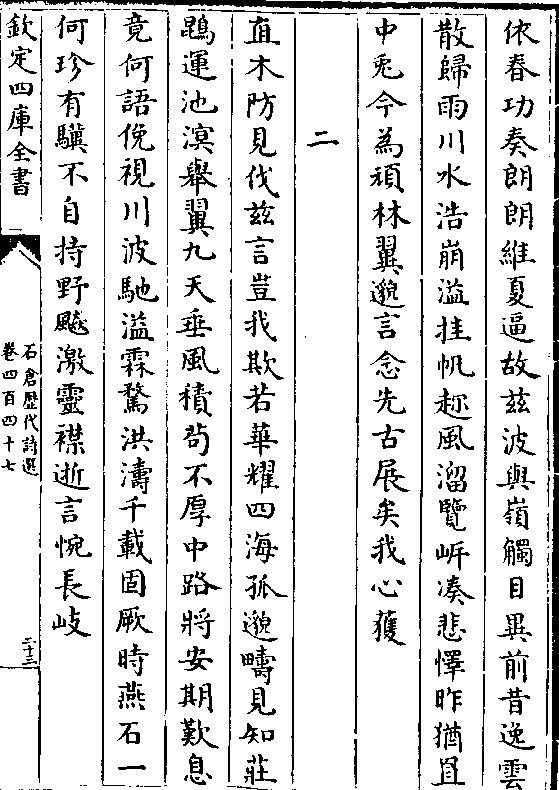 依春功奏朗朗維夏逼故兹波與嶺觸目異前昔逸雲
散歸雨川水浩崩溢挂帆趂風溜覽岸凑悲懌昨猶罝
中兎今為頏林翼邈言念先古展矣我心獲
二
直木防見伐兹言豈我欺若華耀四海孤邈疇見知莊
鵾運池溟舉翼九天垂風積茍不厚中路將安期歎息
竟何語俛視川波馳溢霖騖洪濤千載固厥時燕石一
何珍有驥不自持野飈激靈襟逝言惋長岐
欽定四庫全書
石倉歷代詩選
卷四百四十七
二十三